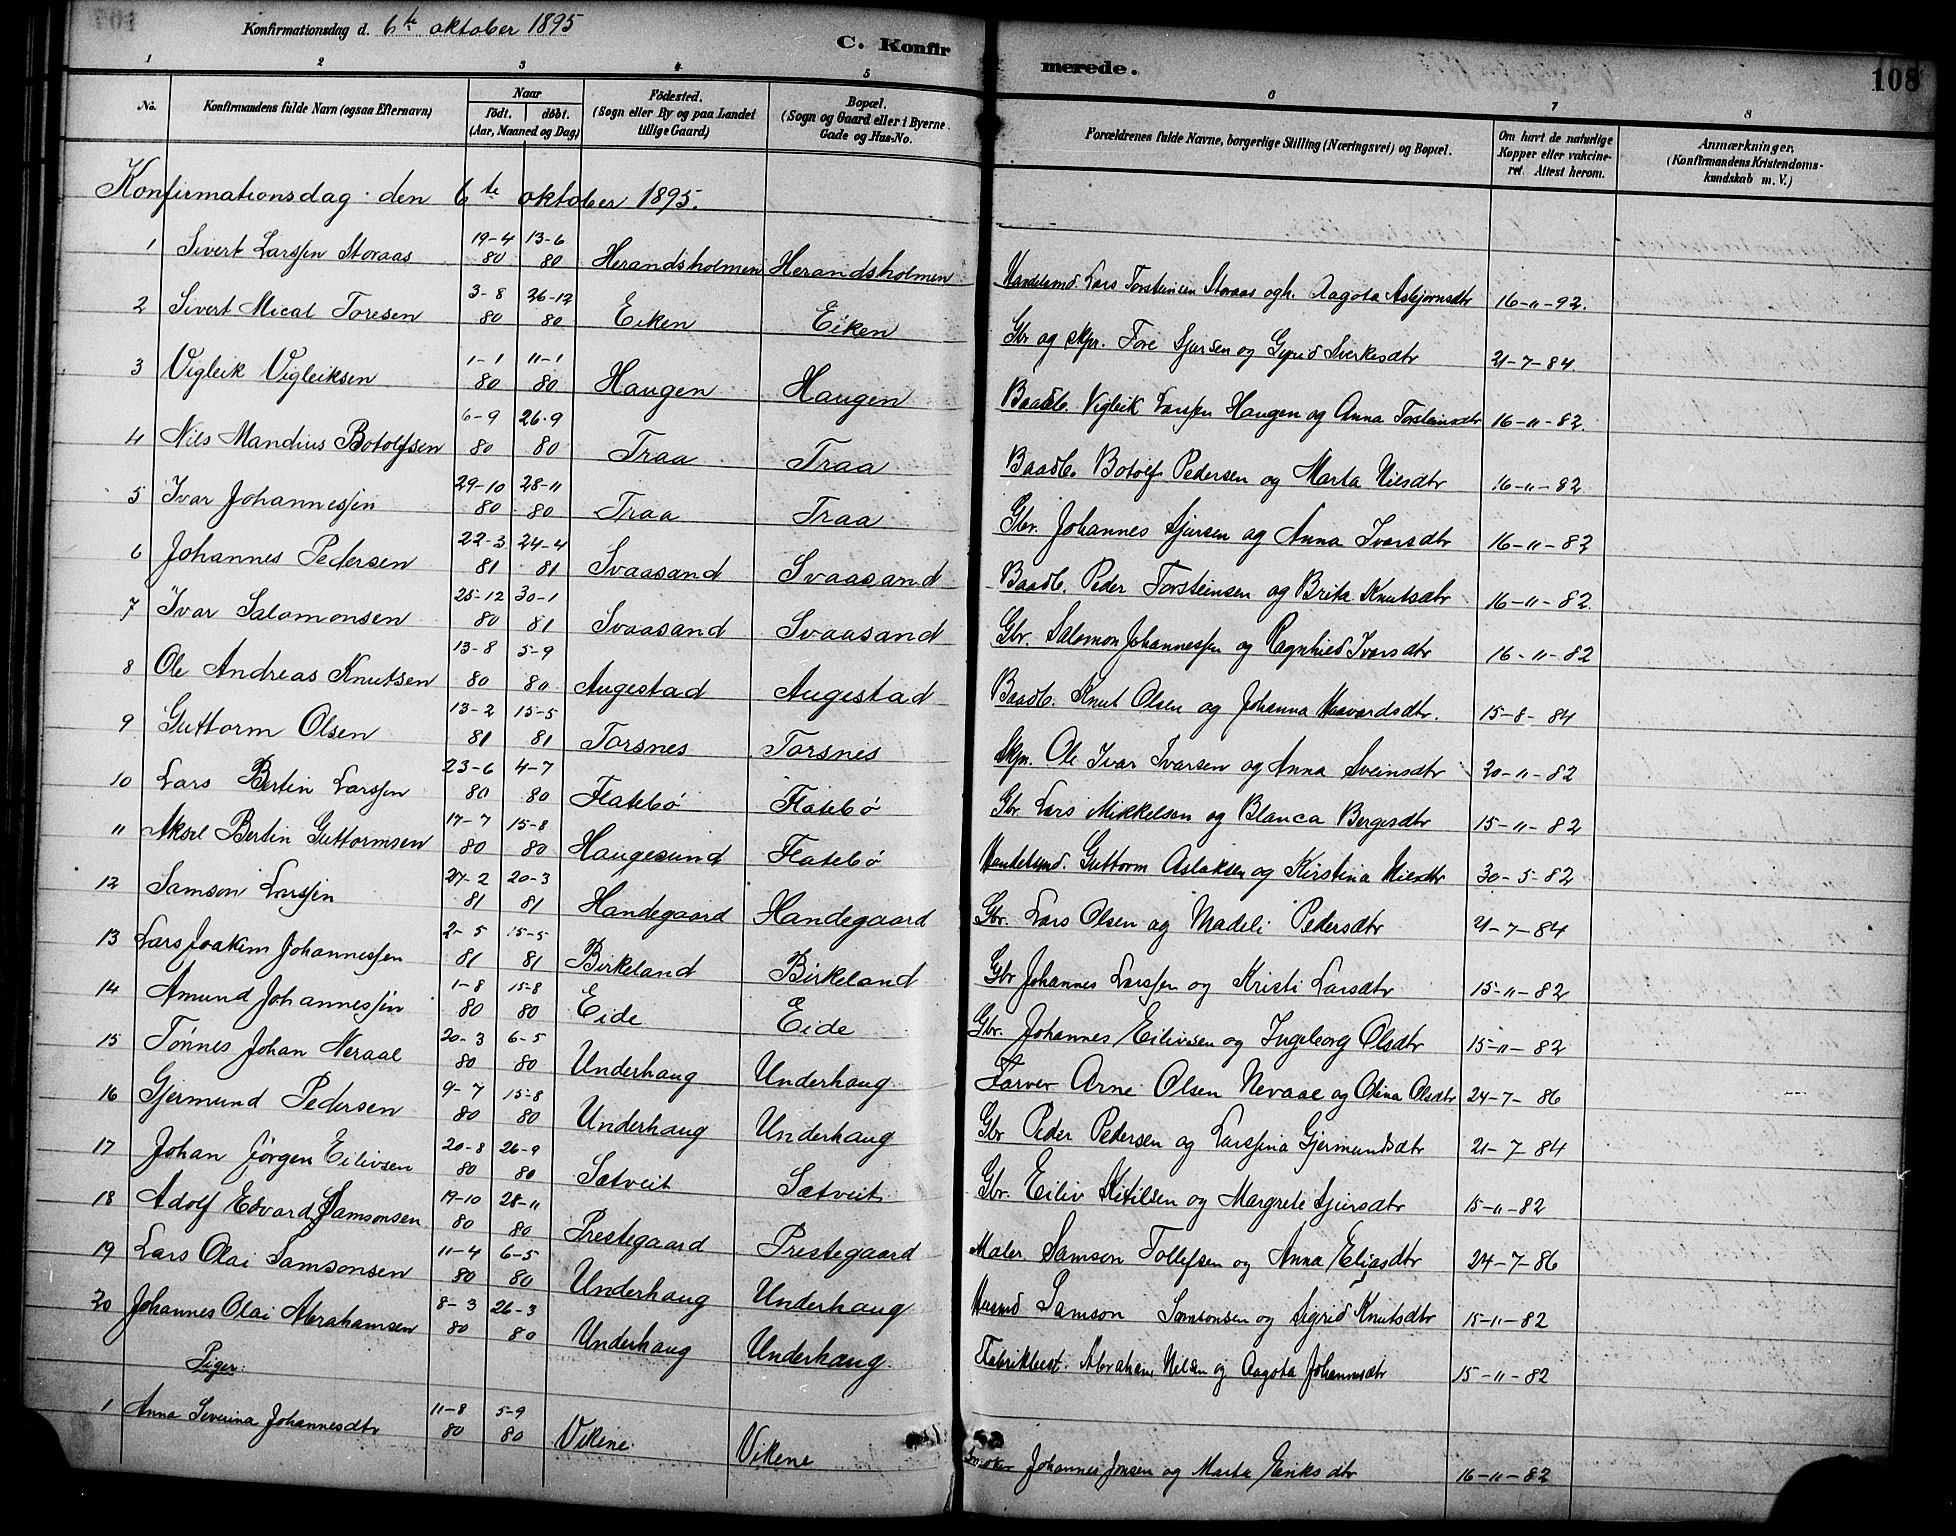 Konfirmationsdag d. 6te oktober 1895
C. Konfirmerede.
108
1 2 3 4 5 6 7 8
No. Konfirmandens fulde Navn (ogsaa Efternavn) Naar født. døbt. (Aar, Maaned og Dag) Fødested. (Sogn eller By og paa Landet tillige Gaard) Bopæl. (Sogn og Gaard eller i Byerne Gade og Hus-No. Forældrenes fulde Navne, borgerlige Stilling (Næringsvei) og Bopæl. Om havt de naturlige Kopper eller vakcineret. Attest herom. Anmærkninger. (Konfirmandens Kristendomskundskab m. V.)
Konfirmationsdag den 6te oktober 1895.
1 Sivert Larssen Storaas 19-4 80 13-6 80 Herandsholmen Herandsholmen Handelsmd. Lars Torsteinsen Storaas ogh. Aagota Asbjørnsdtr 16-11-92.
2 Sivert Mical Toresen 3-8 80 26-12 80 Eiken Eiken Gbr og skpr. Tore Sjursen og Gyrid Sverkesdtr 21-7-84.
3 Vigleik Vigleiksen 1-1 80 11-1 80 Haugen Haugen Baadb. Vigleik Larssen Haugen og Anna Torsteinsdtr 16-11-82.
4 Nils Mandius Botolfsen 6-9 80 26-9 80 Traa Traa Baadb. Botolf Pedersen og Marta Nilsdtr 16-11-82.
5 Ivar Johannessen 29-10 80 28-11 80 Traa Traa Gbr. Johannes Sjursen og Anna Ivarsdtr 16-11-82
6 Johannes Pedersen 22-3 81 24-4 81 Svaasand Svaasand Baadb. Peder Torsteinsen og Brita Knutsdtr 16-11-82.
7 Ivar Salomonsen 25-12 80 30-1 81 Svaasand Svaasand Gbr. Salomon Johannessen og Ragnhild Ivarsdtr 16-11-82
8 Ole Andreas Knutsen 13-8 80 5-9 80 Augestad Augestad Baadb. Knut Olsen og Johanna Haavardsdtr. 15-8-84
9 Guttorm Olsen 13-2 81 15-5 81 Torsnes Torsnes Skpr. Ole Ivar Ivarsen og Anna Sveinsdtr 20-11-82
10 Lars Bertin Larssen 23-6 80 4-7 80 Flatebø Flatebø Gbr Lars Mikkelsen og Blanca Bergesdtr 15-11-82
11 Aksel Bertin Guttormsen 17-7 80 15-8 80 Haugesund Flatebø Handelsmd. Guttorm Aslaksen og Kirstina Nilsdtr 30-5-82
12 Samson Larssen 27-2 81 20-3 81 Handegaard Handegaard Gbr. Lars Olsen og Madeli Pedersdtr 21-7-84
13 Lars Joakim Johannessen 2-5 81 15-5 81 Birkeland Birkeland Gbr Johannes Larssen og Kristi Larsdtr 15-11-82
14 Amund Johannessen 1-8 80 15-8 80 Eide Eide Gbr. Johannes Eilivsen og Ingeborg Olsdtr 15-11-82
15 Tønnes Johan Neraal 20-3 80 6-5 80 Underhaug Underhaug Farver Arne Olsen Neraal og Olina Olsdtr 24-7-86
16 Gjermund Pedersen 9-7 80 15-8 80 Underhaug Underhaug Gbr Peder Pedersen og Larssina Gjermundsdtr 21-7-84
17 Johan Jørgen Eilivsen 20-8 80 26-9 80 Sætveit Sætveit Gbr. Eiliv Kitilsen og Margrete Sjursdtr 15-11-82
18 Adolf Edvard Samsonsen 19-10 80 28-11 80 Prestegaard Prestegaard Maler Samson Tollefsen og Anna Eliasdtr 24-7-86
19 Lars Olai Samsonsen 11-4 80 6-5 80 Underhaug Underhaug Husmd Samson Samsonsen og Sigrid Knutsdtr 15-11-82
20 Johannes Olai Abrahamsen 8-3 80 26-3 80 Underhaug Underhaug Fabrikbest. Abraham Nilsen og Aagota Johannesdtr 15-11-82
Piger.
1 Anna Severina Johannesdtr 11-8 80 5-9 80 Vikene Vikene Johannes Jonsen og Marta Eriksdtr 16-11-82